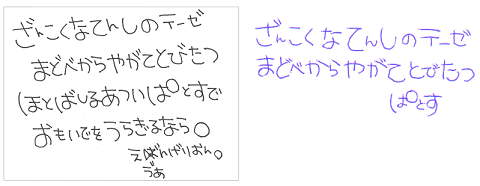 ざんこくなてんしのテーゼ
まどべからやがてとびたつ
ほとばしるあついぱとすで
おもいでをうらぎるなら〇
えばんげりおん。
ゔぁ
ざんこくなてんしのテーゼ
まどべからやがてとびたつ
ぱとす